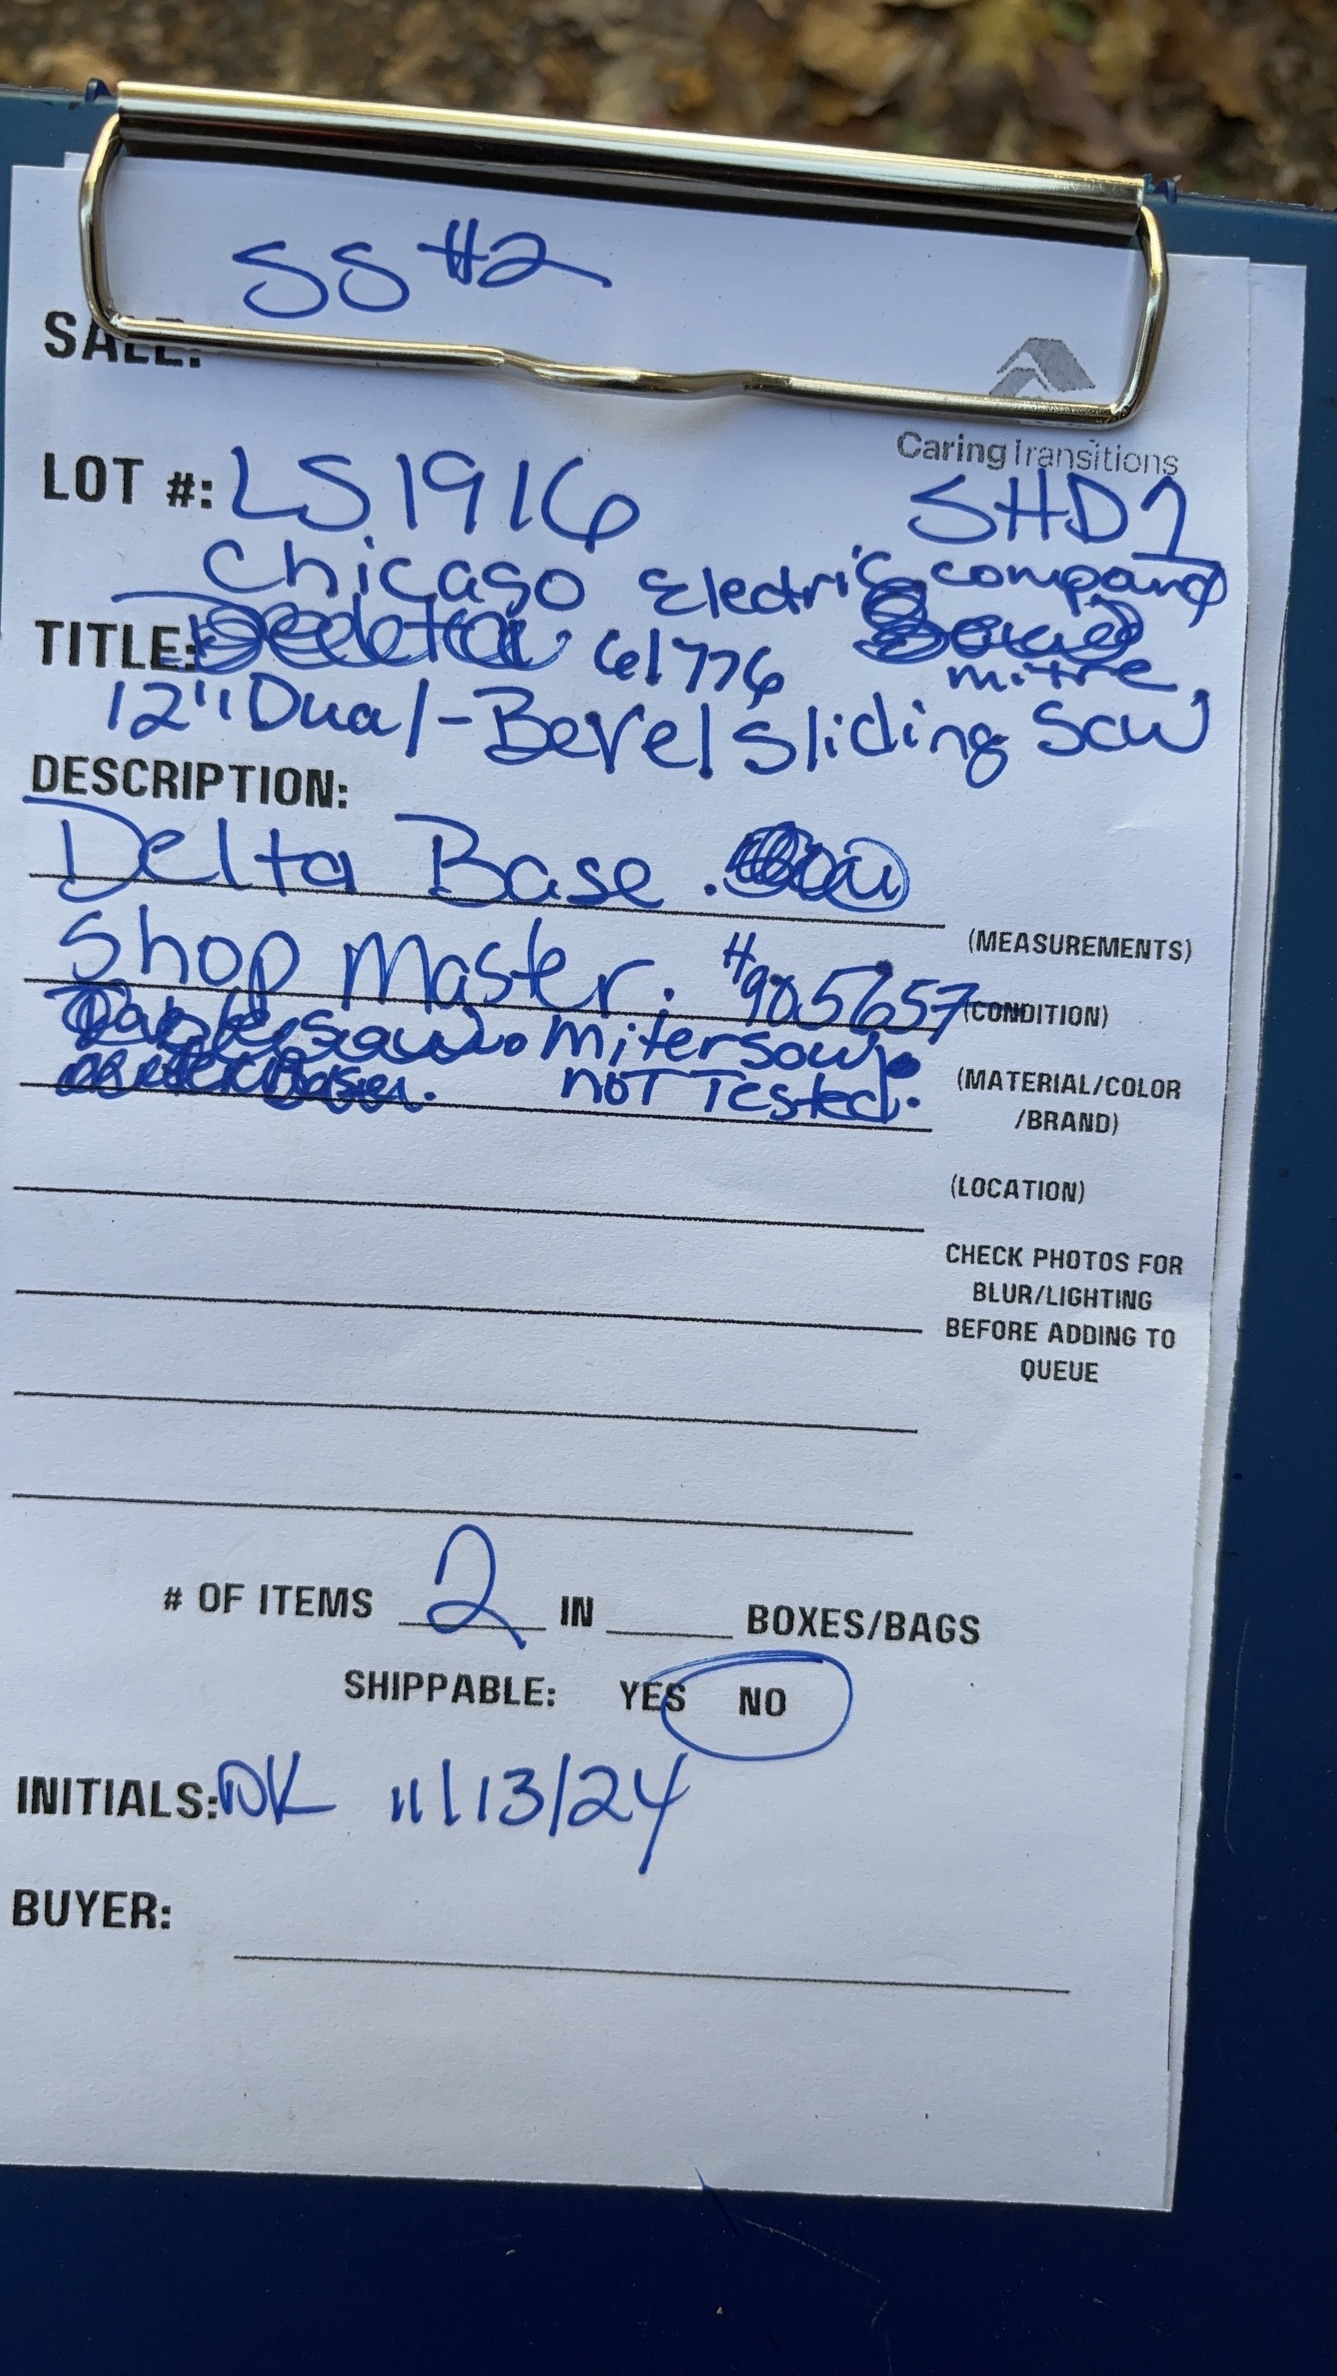 SS #2
SALE:
Caring Transitions
LOT #: LS1916 SHD1
Chicago Electric compound
TITLE: 61776 mitre
12" Dual-Bevel Sliding Saw
DESCRIPTION:
Delta Base.
(MEASUREMENTS)
Shop Master. #905657
(CONDITION)
Mitersaw.
Not Tested.
(MATERIAL/COLOR
/BRAND)
(LOCATION)
CHECK PHOTOS FOR
BLUR/LIGHTING
BEFORE ADDING TO
QUEUE
# OF ITEMS 2 IN BOXES/BAGS
SHIPPABLE: YES NO
INITIALS: DK 11/13/24
BUYER: